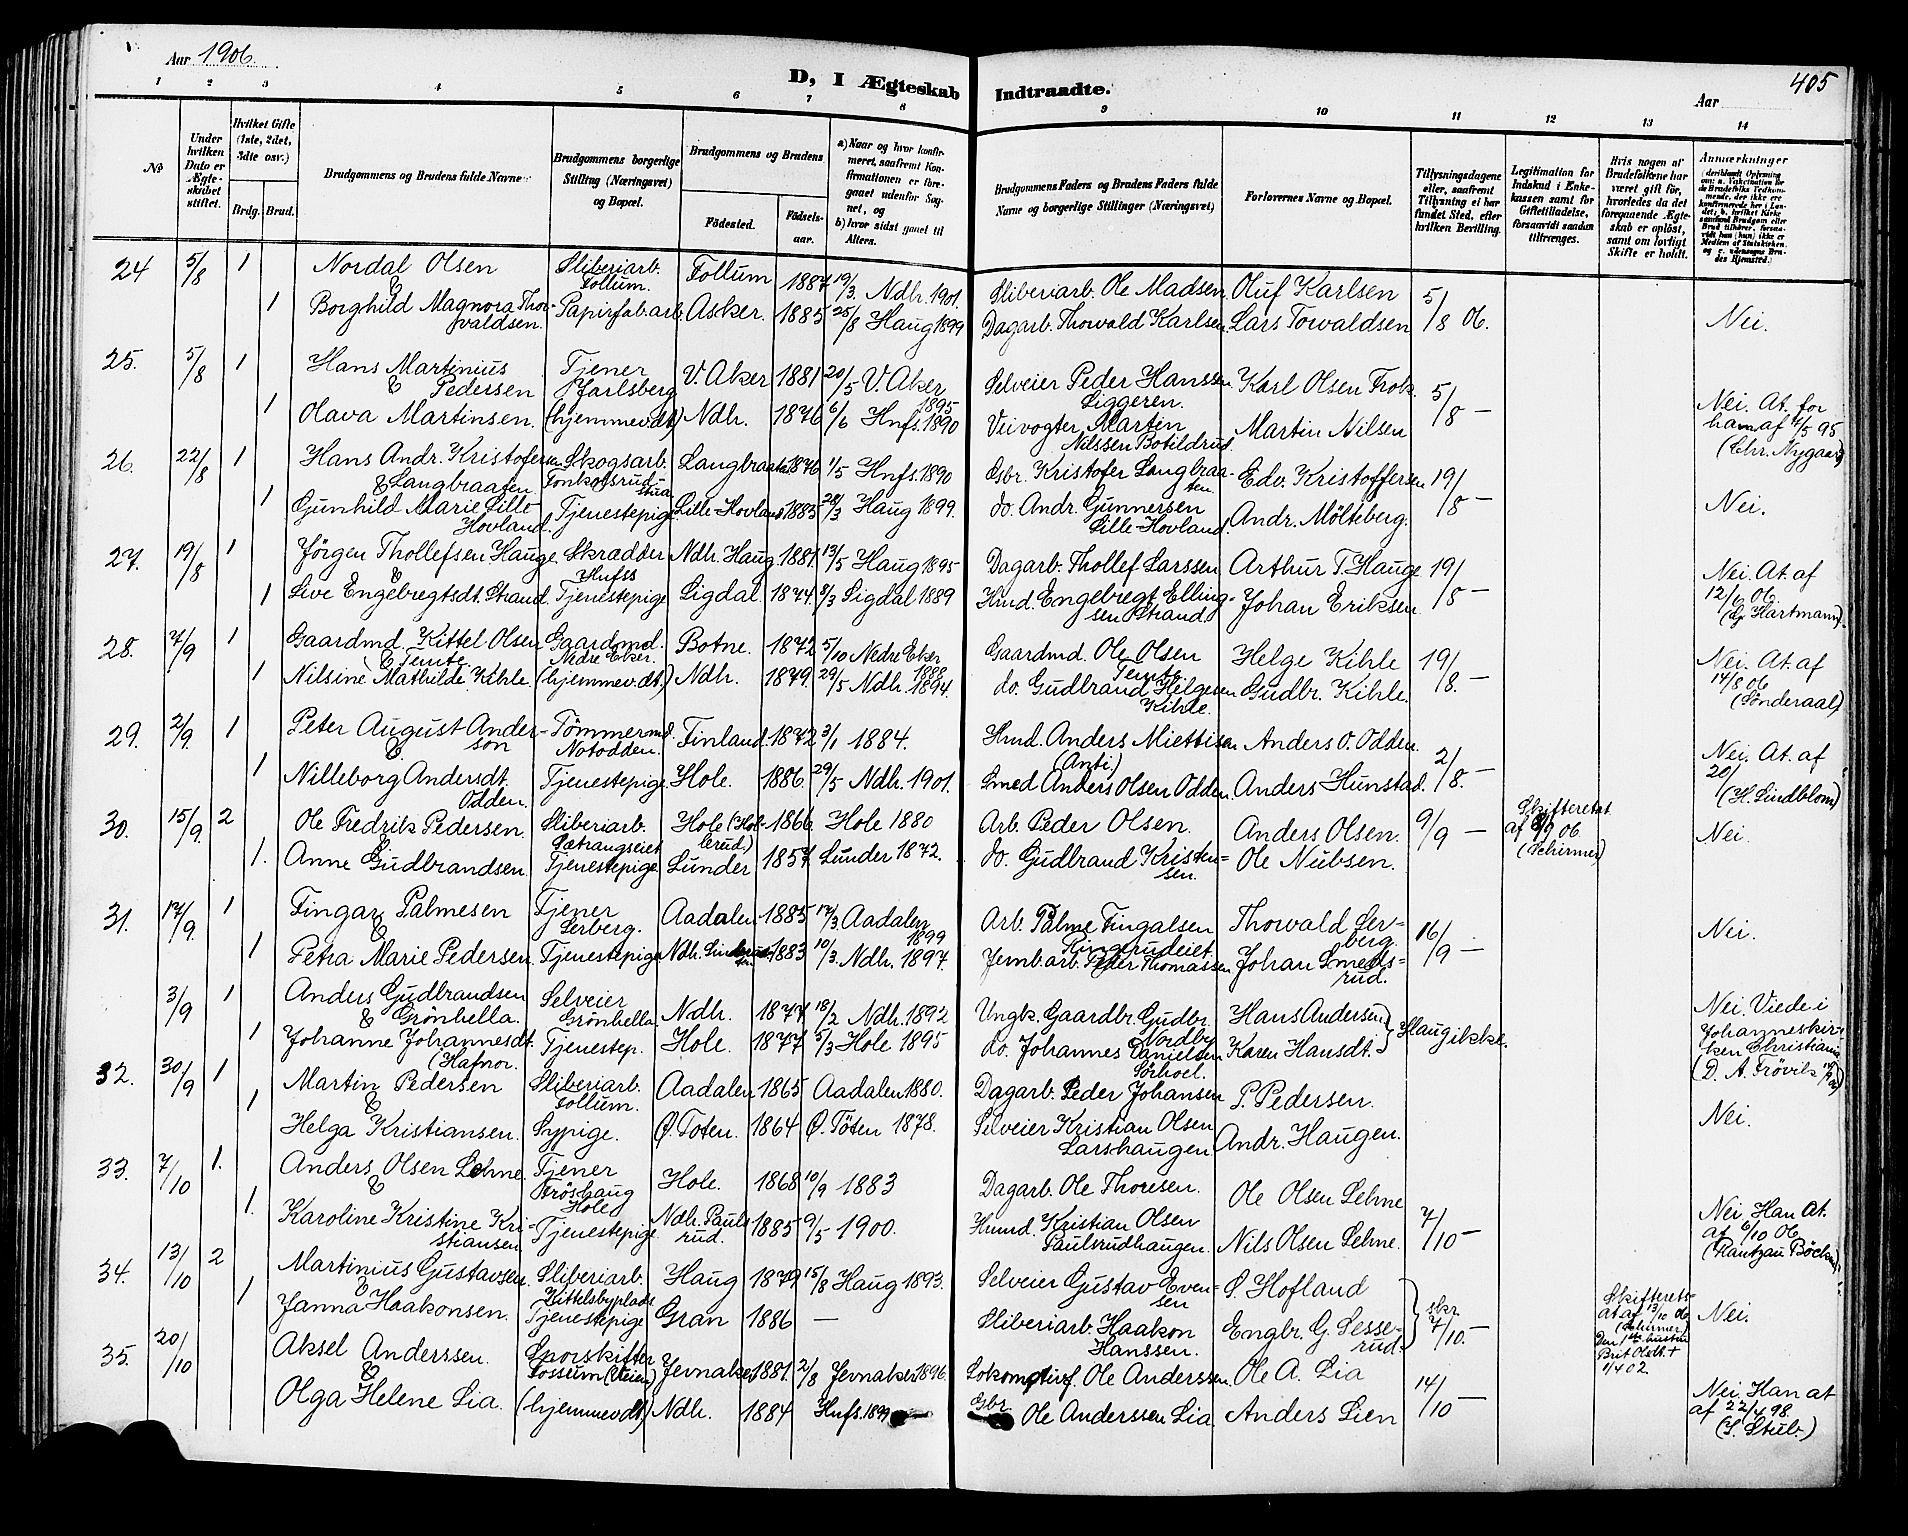 Aar 1906.
D, I Ægteskab Indtraadte.
Aar
405
1 2 3 4 5 6 7 8 9 10 11 12 13 14
No
Under hvilken Dato er Ægteskabet stiftet.
Hvilket Gifte (1ste, 2det, 3die osv.)
Brdg. Brud.
Brudgommens og Brudens fulde Navne
Brudgommens borgerlige Stilling (Næringsvei) og Bopæl.
Brudgommens og Brudens
Fødested.
Fødselsaar.
a) Naar og hvor konfirmeret, saafremt Konfirmationen er foregaaet udenfor Sognet, og
b) hvor sidst gaaet til Alters.
Brudgommens Faders og Brudens Faders fulde Navne og borgerlige Stillinger (Næringsvei)
Forlovernes Navne og Bopæl.
Tillysningsdagene eller, saafremt Tillysning ei har fundet Sted, efter hvilken Bevilling.
Legitimation for Indskud i Enkekassen samt for Giftetilladelse, forsaavidt saadan tiltrænges.
Hvis nogen af Brudefolkene har været gift før, hvorledes da det foregaaende Ægteskab er opløst, samt om lovligt Skifte er holdt.
Anmærkninger
24 5/8 1 Nordal Olsen Sliberiarb. Follum. Follum 1887 19/3 Ndh. 1901. Sliberiarb. Ole Madsen Oluf Karlsen 5/8 06.
&
1 Borghild Magnora Thorvaldsen. Papirfab.arb. Asker. 1885 25/8 Haug 1899 Dagarb. Thorvald Karlsen Lars Towaldsen Nei.
25. 5/8 1 Hans Martinius Pedersen Tjener Jarlsberg V. Aker 1881 20/5 V. Aker 1895 Selveier Peder Hanssen Siggeren. Karl Olsen Frok. 5/8 —
&
1 Olava Martinsen. (hjemmev. dt) Ndh. 1876 6/6 Hnfs. 1890 Veivogter Martin Nilssen Botildrud Martin Nilsen Nei. At. for ham af 12/5 95 (Chr. Nygaard)
26. 22/8 1 Hans Andr. Kristofersen Langbraaten Skogsarb. Langbraaten 1876 1/5 Hnfs. 1890 Gbr. Kristofer Langbraaten Edv. Kristoffersen 19/8 —
&
1 Gunhild Marie Lille-Hovland. Tjenestepige Lille-Hovland 1885 28/3 Haug 1899. do. Andr. Gunnersen Lille-Hovland. Andr. Mölteberg. Nei.
27. 19/8 1 Jørgen Thollefsen Hauge Skradder Hnfss Ndh. Haug 1881. 13/5 Haug 1895 Dagarb. Thollef Larssen Arthur T. Hauge 19/8 —
&
1 Live Engebregtsdt. Strand. Tjenestepige Sigdal. 1874. 8/3 Sigdal 1889 Hmd. Engebregt Ellingsen Strand. Johan Eriksen Nei. At. af 12/6 06. (Hartmann)
28. 7/9 1 Gaardmd. Kittel Olsen Temte Gaardmd. Nedre Eker. Botne. 1872 5/10 Nedre Eker 1888 Gaardmd. Ole Olsen Temte. Helge Kihle 19/8. —
&
1 Nilsine Mathilde Kihle. (hjemmev. dt.) Ndh. 1879. 29/5 Ndh. 1894. do. Gudbrand Helgesen Kihle. Gudbr. Kihle. Nei. At. af 14/8 06 (Sönderaal)
29. 2/9. 1 Peter August Anderson Tömmermd. Notodden. Finland. 1872 3/1 1884. Hmd. Anders Miettisen (Anti.) Anders O. Odden. 2/8. —
&
1 Nilleborg Andersdt. Odden. Tjenestepige Hole. 1886. 29/5 Ndh. 1901. Smed Anders Olsen Odden. Anders Hunstad. Nei. At. af 20/ (H. Lindblom)
30. 15/9. 2 Ole Fredrik Pedersen. Sliberiarb. Hole 1866 Hole 1880 Arb. Peder Olsen. Anders Olsen. 9/9 — Skifteretat. af 06 (Schirmer) Nei.
1. Anne Gudbrandsen Tjenestepige Lunder 1857 Lunder 1872. do. Gudbrand Kristensen. Ole Nubsen.
31. 17/9. 1 Fingar Palmesen Tjener Lerberg. Aadalen 1885 17/3 Aadalen 1899 Arb. Palme Fingalsen Ringerudeiet Thorvald Lerberg 16/9 —
&
1 Petra Marie Pedersen Tjenestepige Ndh. 1883 10/3 Ndh. 1897. Jernb.arb. Peder Thomassen Johan Smedsrud. Nei.
3/9 1 Anders Gudbrandsen Grönhella. Selveier Grönhella Ndh. 1877 18/2 Ndh. 1892 Ungk. Gaardbr. Gudbr. Nordby Hans Andersen Haug ikke.
&
1 Johanne Johannesdt. (Hafnor. Tjenestep. Hole. 1877 5/3 Hole 1895 do. Johannes Danielsen Sörhoel. Karen Hansdt. Nei. Viede i Johanneskirken Christiania (D. A. Frövik)
32. 30/9 1 Martin Pedersen Sliberiarb. Follum. Aadalen 1865 Aadalen 1880. Dagarb. Peder Johansen P. Pedersen.
&
1 Helga Kristiansen. Sypige. Ø. Toten. 1864 Ø. Töten 1878. Selveier Kristian Olsen Larshaugen Andr. Haugen. Nei.
33. 7/10 1. Anders Olsen Lehne Tjener Fröshaug Hole Hole. 1868 10/9 1883 Dagarb. Ole Thoresen. Ole Olsen Lehne 7/10 —
&
1. Karoline Kristine Kristiansen Tjenestepige Ndh. Paulsrud. 1885 9/5 1900. Hmmd. Kristian Olsen Paulsrudhaugen. Nils Olsen Lehne. Nei. Han At. af 6/10 06 (Rantzau Böckm)
34. 13/10 2 Martinius Gustavsen. Sliberiarb. Kittelsbyplads Haug 1879 15/8 Haug 1893. Selveier Gustav Evensen S. Hofland skr. 7/10. —
&
1 Janna Haakonsen. Tjenestepige Gran 1886 — Sliberiarb. Haakon Hanssen. Engbr. G. Sesserud. Skifterets-at. af 13/10 06 (Schirmer) Den 1ste hustru Brit Olsdt. † 1/4 02. Nei.
35. 20/10 Aksel Anderssen. Sporskifter Fossum Jevnaker 1881. 2/8 Jevnaker 1896. Ole Anderssen. Ole A. Lia 14/10 —
&
Olga Helene Lia. (hjemmev. dt) Ndh. 1884 Hnfs. 1899 Gbr. Ole Anderssen Lia. Anders Lien Nei. Han at af 22/4 98. (S. Stub.)